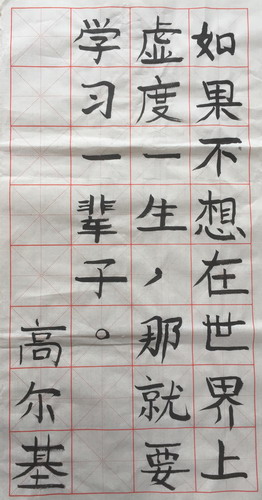 如果不想在世界上
虚度一生，那就要
学习一辈子。
高尔基